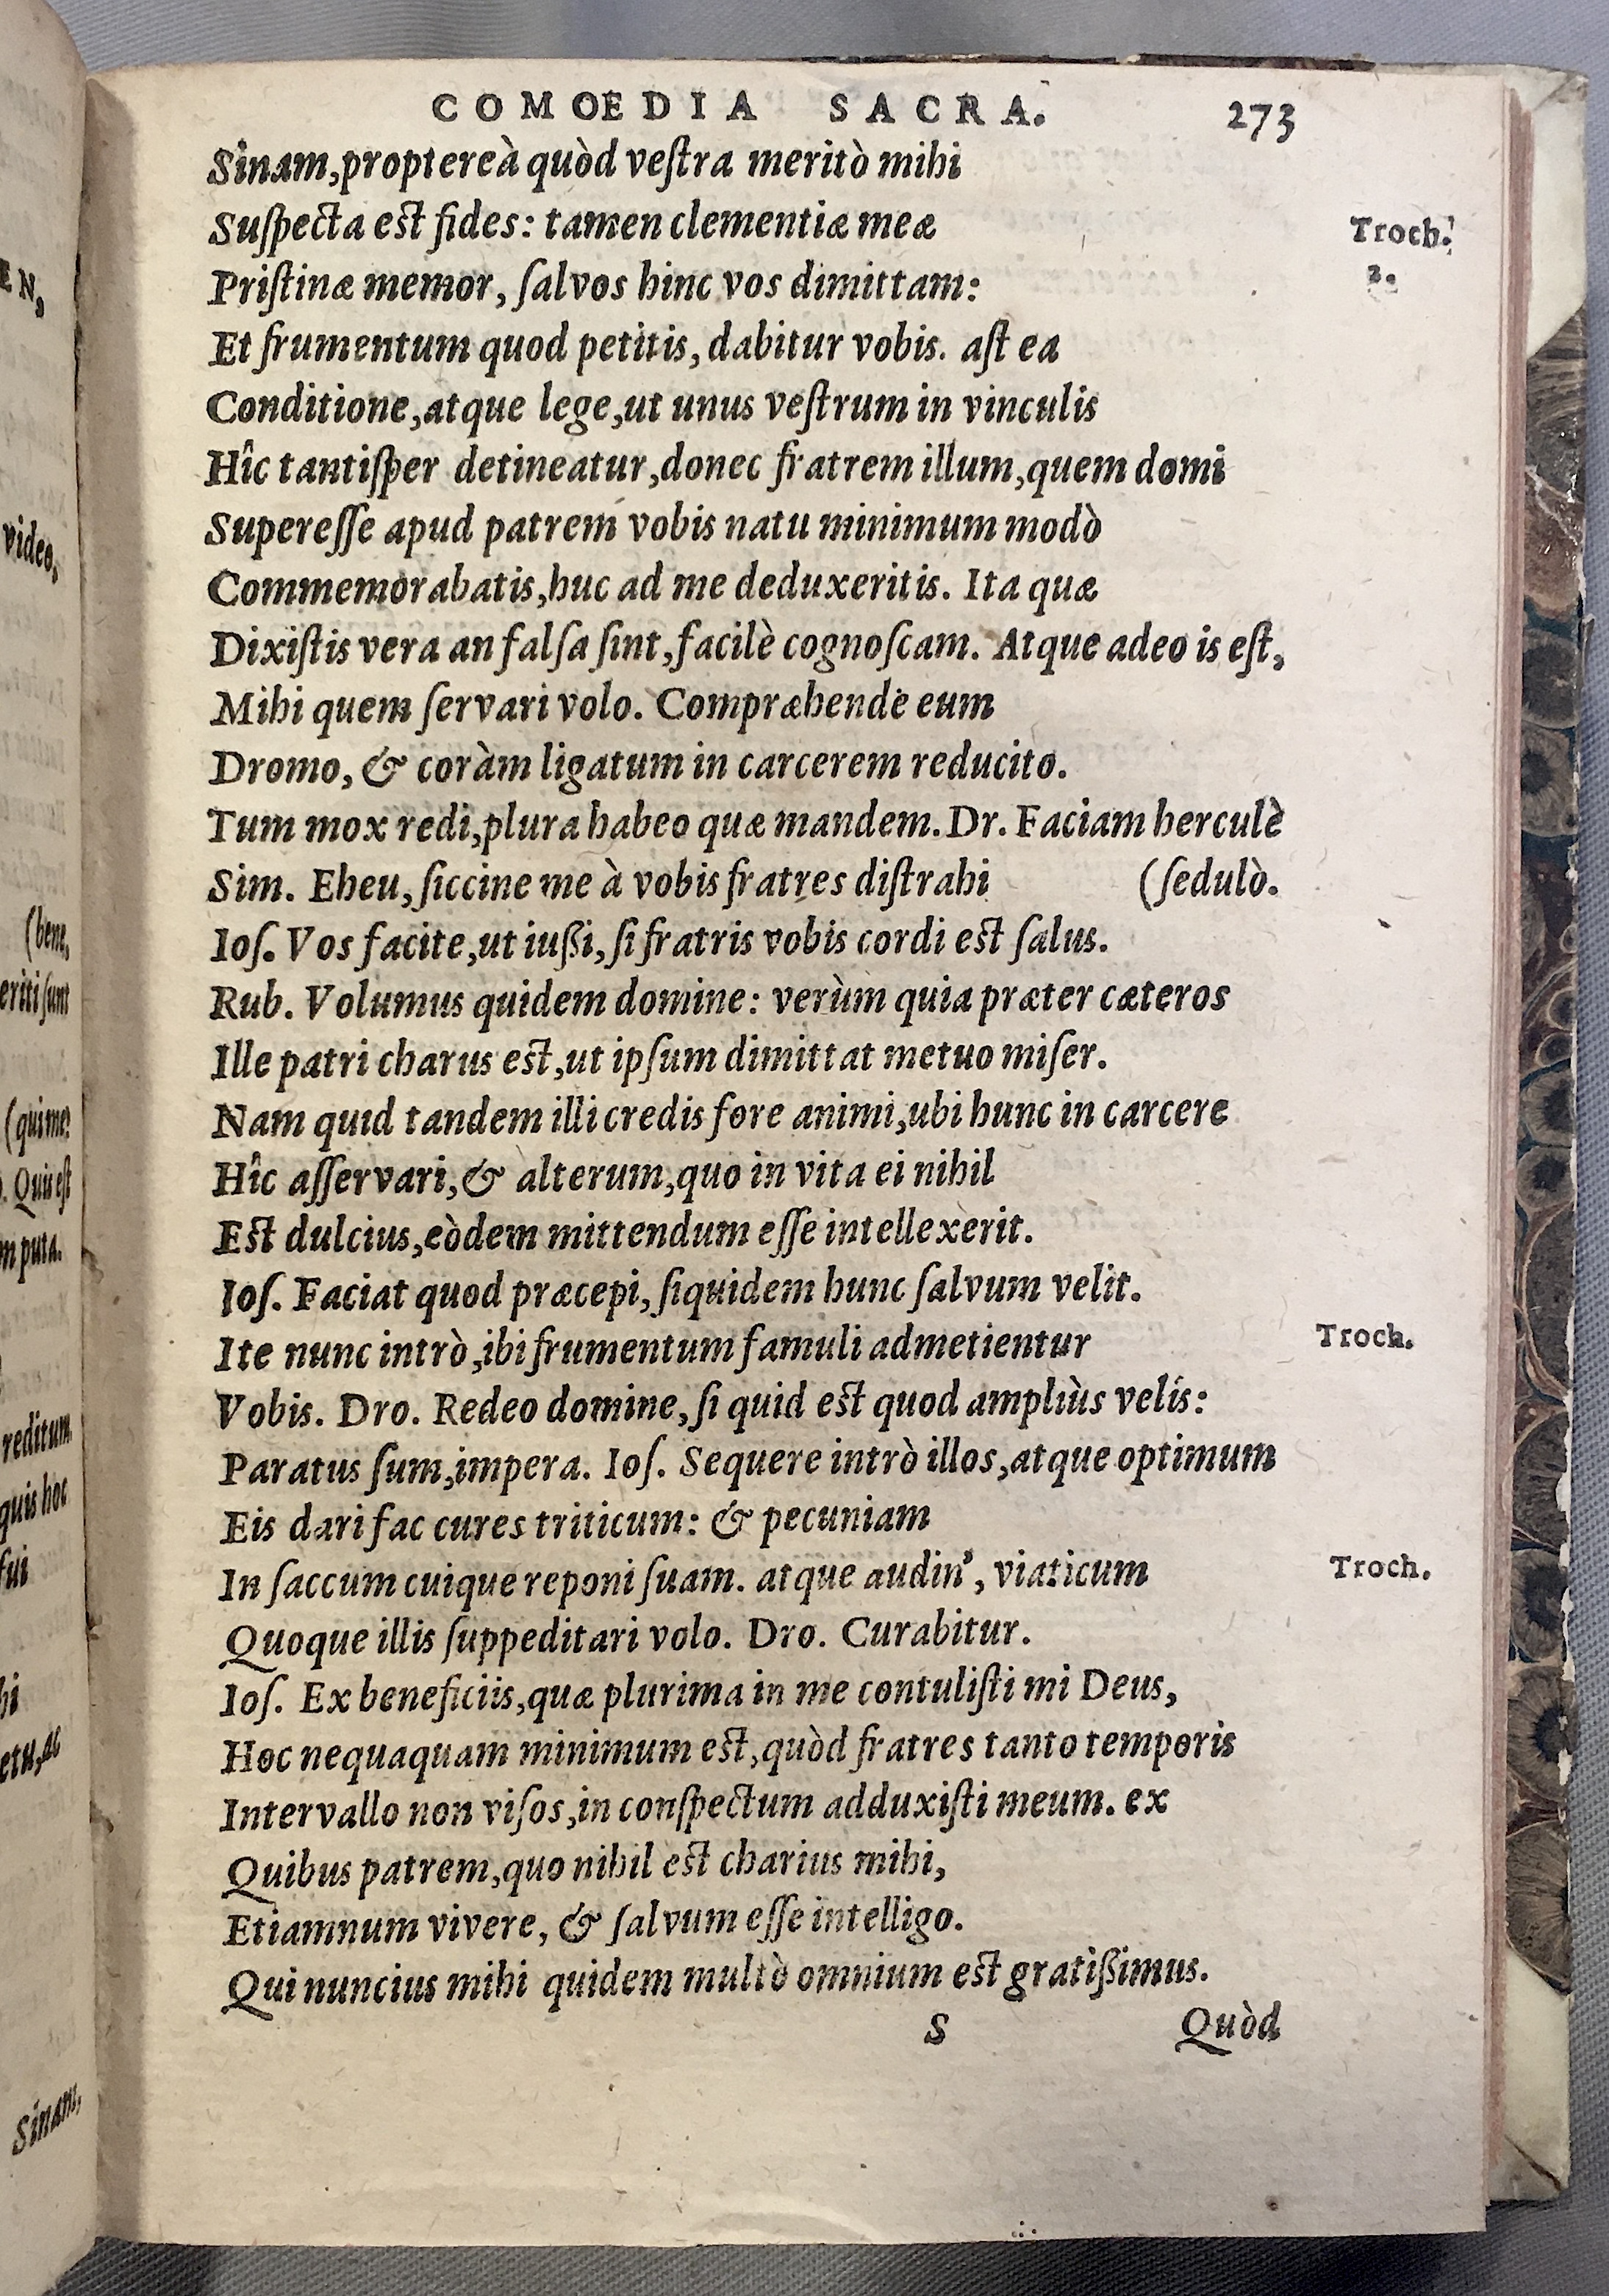 COMOEDIA SACRA. 273
Sinam, proptereà quòd veſtra meritò mihi
Suſpecta est fides: tamen clementiæ meæ
Troch.
2.
Priſtinæ memor, ſalvos hinc vos dimittam:
Et frumentum quod petitis, dabitur vobis. aſt ea
Conditione, atque lege, ut unus veſtrum in vinculis
Hîc tantiſper detineatur, donec fratrem illum, quem domi
Supereſſe apud patrem vobis natu minimum modò
Commemorabatis, huc ad me deduxeritis. Ita quæ
Dixiſtis vera an falſa ſint, facilè cognoſcam. Atque adeo is eſt,
Mihi quem ſervari volo. Compræhende eum
Dromo, & coràm ligatum in carcerem reducito.
Tum mox redi, plura habeo quæ mandem. Dr. Faciam herculè
Sim. Eheu, ſiccine me à vobis fratres diſtrahi (ſedulò.
Ioſ. Vos facite, ut iußi, ſi fratris vobis cordi est ſalus.
Rub. Volumus quidem domine: verùm quia præter cæteros
Ille patri charus est, ut ipſum dimittat metuo miſer.
Nam quid tandem illi credis fore animi, ubi hunc in carcere
Hîc aſſervari, & alterum, quo in vita ei nihil
Est dulcius, eòdem mittendum eſſe intellexerit.
Ioſ. Faciat quod præcepi, ſiquidem hunc ſalvum velit.
Ite nunc intrò, ibi frumentum famuli admetientur
Troch.
Vobis. Dro. Redeo domine, ſi quid est quod ampliùs velis:
Paratus ſum, impera. Ioſ. Sequere intrò illos, atque optimum
Eis dari fac cures triticum: & pecuniam
In ſaccum cuique reponi ſuam. atque audin', viaticum
Troch.
Quoque illis ſuppeditari volo. Dro. Curabitur.
Ioſ. Ex beneficiis, quæ plurima in me contuliſti mi Deus,
Hoc nequaquam minimum est, quòd fratres tanto temporis
Intervallo non viſos, in conſpectum adduxiſti meum. ex
Quibus patrem, quo nihil est charius mihi,
Etiamnum vivere, & ſalvum eſſe intelligo.
Qui nuncius mihi quidem multò omnium est gratißimus.
S Quòd
EN,
video,
(bene,
eriti ſunt
(qui me?
. Quis eſt
m puta.
reditum.
quis hoc
fui
hi
etu, ac
Sinam,